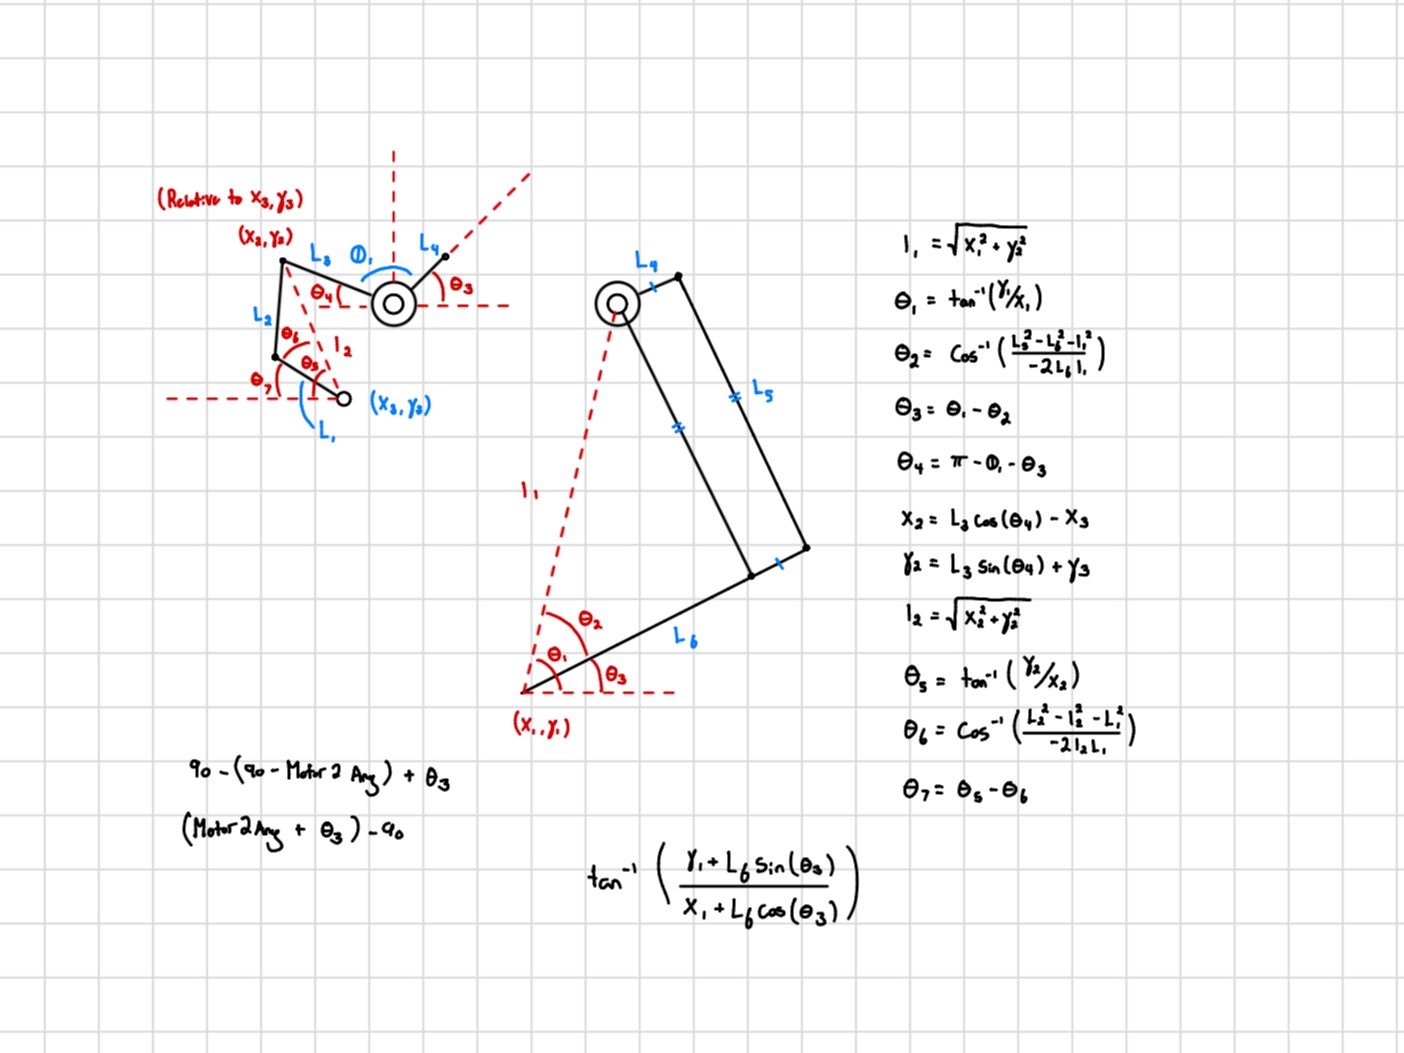 (Relative to x₃, y₃)
(x₂, y₂)
L₃
Φ₁
L₄
θ₄
θ₃
L₂
θ₆
l₂
θ₅
θ₇
(x₃, y₃)
L₁
L₄
L₅
l₁
θ₂
θ₁
L₆
θ₃
(x₁, y₁)
l₁ = √(x₁² + y₂²)
θ₁ = tan⁻¹(y₁/x₁)
θ₂ = cos⁻¹((L₅² - L₆² - l₁²)/(-2L₆l₁))
θ₃ = θ₁ - θ₂
θ₄ = π - Φ₁ - θ₃
x₂ = L₃ cos(θ₄) - x₃
y₂ = L₃ sin(θ₄) + y₃
l₂ = √(x₂² + y₂²)
θ₅ = tan⁻¹(y₂/x₂)
θ₆ = cos⁻¹((L₂² - l₂² - L₁²)/(-2l₂L₁))
θ₇ = θ₅ - θ₆
90 - (90 - Motor 2 Ang) + θ₃
(Motor 2 Ang + θ₃) - 90
tan⁻¹((y₁ + L₆ sin(θ₃))/(x₁ + L₆ cos(θ₃)))